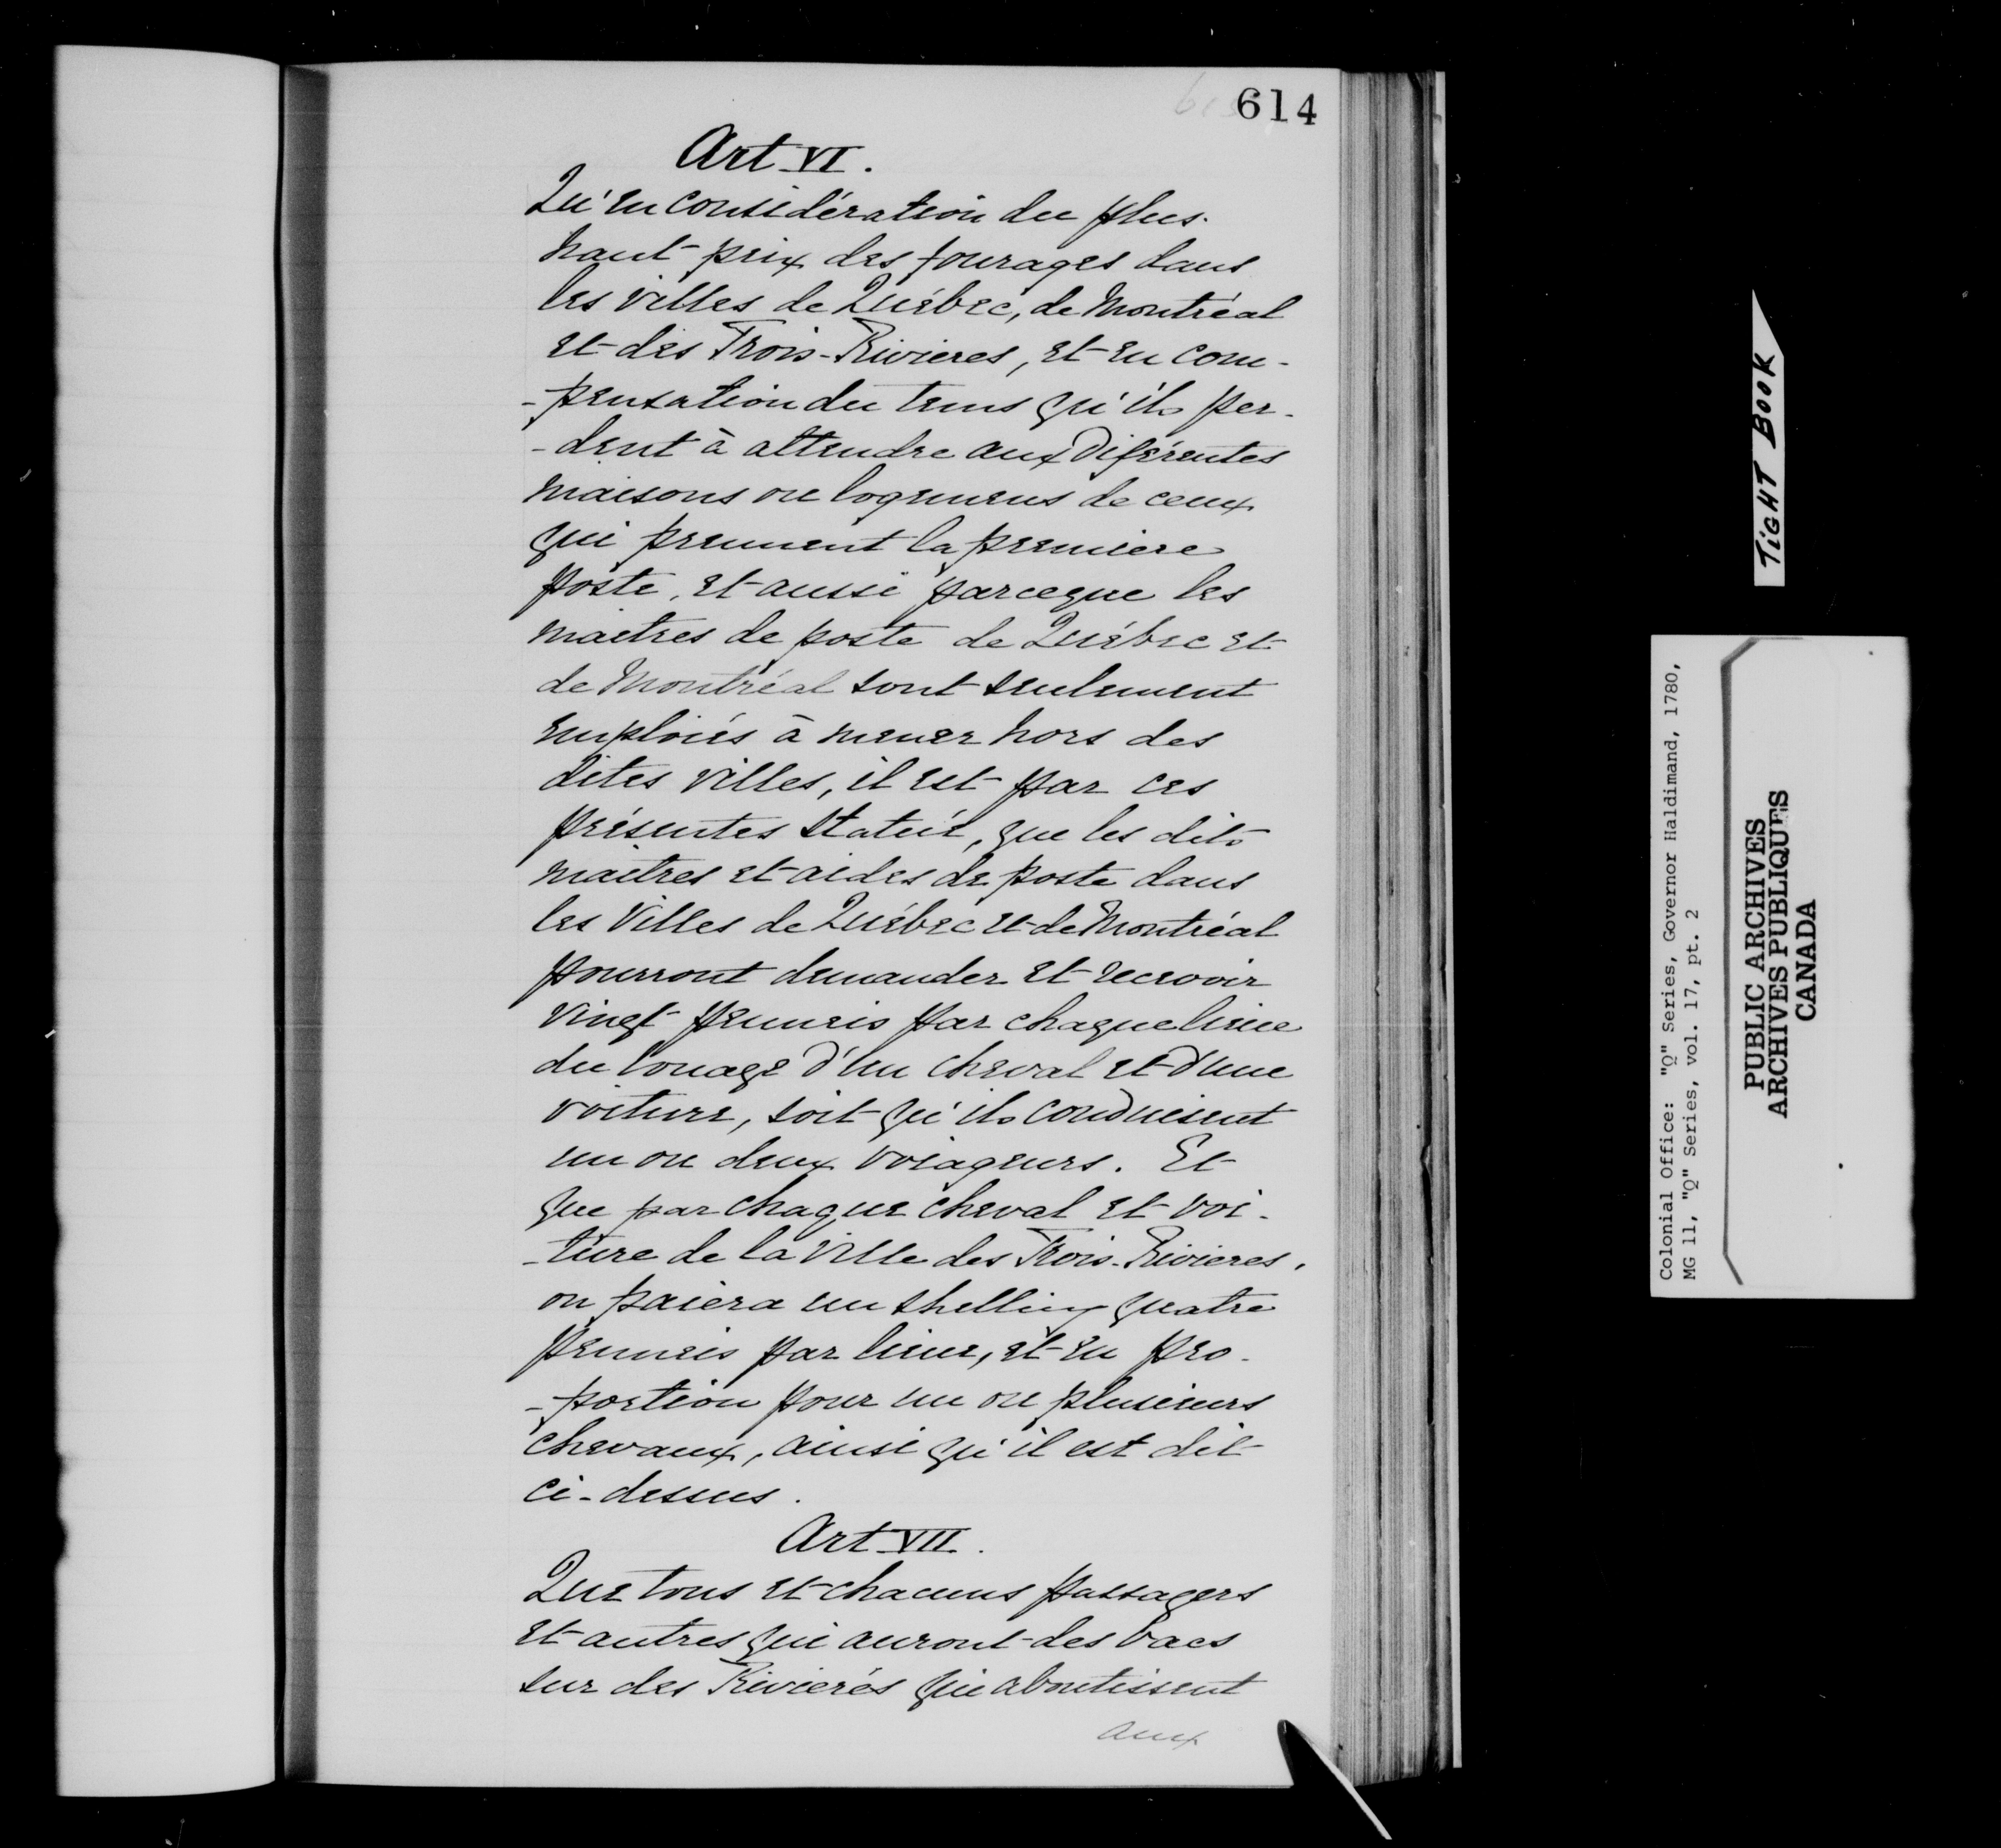 614
Art VI.
Qu'en considération du plus
haut prix des fourages dans
les villes de Québec, de Montréal
et des Trois-Rivieres, et en com-
-pensation du tems qu'ils per-
-dent à attendre aux Diférentes
maisons ou logemens de ceux
qui prennent la premiere
poste, et aussi parceque les
maitres de poste de Québec et
de Montréal sont seulement
emploiés à mener hors des
dites villes, il est par ces
présentes Statué, que les dits
maitres et aides de poste dans
les Villes de Québec et de Montréal
pourront demander et recevoir
vingt penneis par chaque lieue
du louage d'un cheval et d'une
voiture, soit qu'ils conduisent
un ou deux voiageurs. Et
que par chaque cheval et voi-
-ture de la ville des Trois-Rivieres,
on paiera un shelling quatre
penneis par lieue, et en pro-
-portion pour un ou plusieurs
chevaux, ainsi qu'il est dit
ci-dessus.
Art VII.
Que tous et chacuns passagers
et autres qui auront des bacs
sur des Rivierés qui aboutissent
aux
TIGHT BOOK
Colonial Office: "Q" Series, Governor Haldimand, 1780,
MG 11, "Q" Series, vol. 17, pt. 2
PUBLIC ARCHIVES
ARCHIVES PUBLIQUES
CANADA